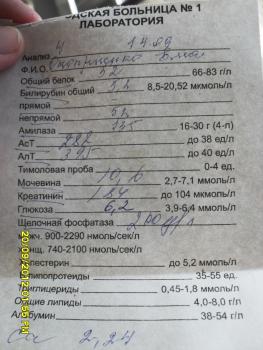 ОДСКАЯ БОЛЬНИЦА № 1
ЛАБОРАТОРИЯ
Анализ 4 14.09
Ф.И.О.
Общий белок 52 66-83 г/л
Билирубин общий 5,2 8,5-20,52 мкмоль/л
прямой
непрямой 5,2
Амилаза 135 16-30 г (4-л)
АсТ 282 до 38 ед/л
АлТ 395 до 40 ед/л
Тимоловая проба 0-4 ед.
Мочевина 10,6 2,7-7,1 ммоль/л
Креатинин 184 до 104 мкмоль/л
Глюкоза 6,2 3,9-6,4 ммоль/л
Щелочная фосфатаза 200 д/л
жч. 900-2290 нмоль/сек/л
енщ. 740-2100 нмоль/сек/л
олестерин до 5,2 ммоль/л
липопротеиды 35-55 ед.
риглицериды 0,45-1,8 ммоль/л
Общие липиды 4,0-8,0 г/л
Альбумин 38-54 г/л
Ca 2,24
20/09/2012